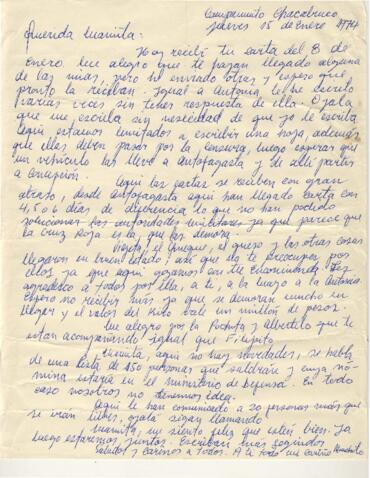 Campamento Chacabuco
Jueves 15 de Enero 1974
Querida Mamita:
Hoy recibí tu carta del 8 de
Enero. Me alegro que te hayan llegado alguna
de las mías, pero he enviado otras y espero que
pronto la reciban. Igual a Antonia, le he escrito
varias veces sin tener respuesta de ella. Ojala
que me escriba sin necesidad de que yo le escriba
Aquí estamos limitados a escribir una hoja, además
que ellas deben pasar por la censura, luego esperar que
un vehículo las lleve a Antofagasta y de allí partir
a Concepción.
Aquí las cartas se reciben con gran
atraso, desde Antofagasta aquí han llegado carta con
4, 5 o 6 días de diferencia lo que no han podido
solucionar las autoridades militares ya que parece que
la Cruz Roja es la que las demora.
el queque, el queso y las otras cosas
llegaron en buen estado, así que no te preocupes por
ellos ya que aquí gozamos con me
agradesco a todos por ella, a te, a la y a la Antonia
Espero no recibir más ya que se demoran mucho en
llegar y el valor del Kilo vale un millón de pesos.
Me alegro por la y Albertito que te
estan acompañando igual que Filipito
Mamita, aquí no hay novedades, se habla
de una lista de 150 personas que saldrían y cuya nó-
mina estaría en el ministerio de Defensa. En todo
caso nosotros no tenemos idea.
Aquí le han comunicado a 30 personas más que
se irán libres, ojala sigan llamando
Mamita, me siento feliz que estén bien. Ya
luego estaremos juntos. Escriban mas seguidos
Saludos y cariños a todos. A ti todo mi cariño